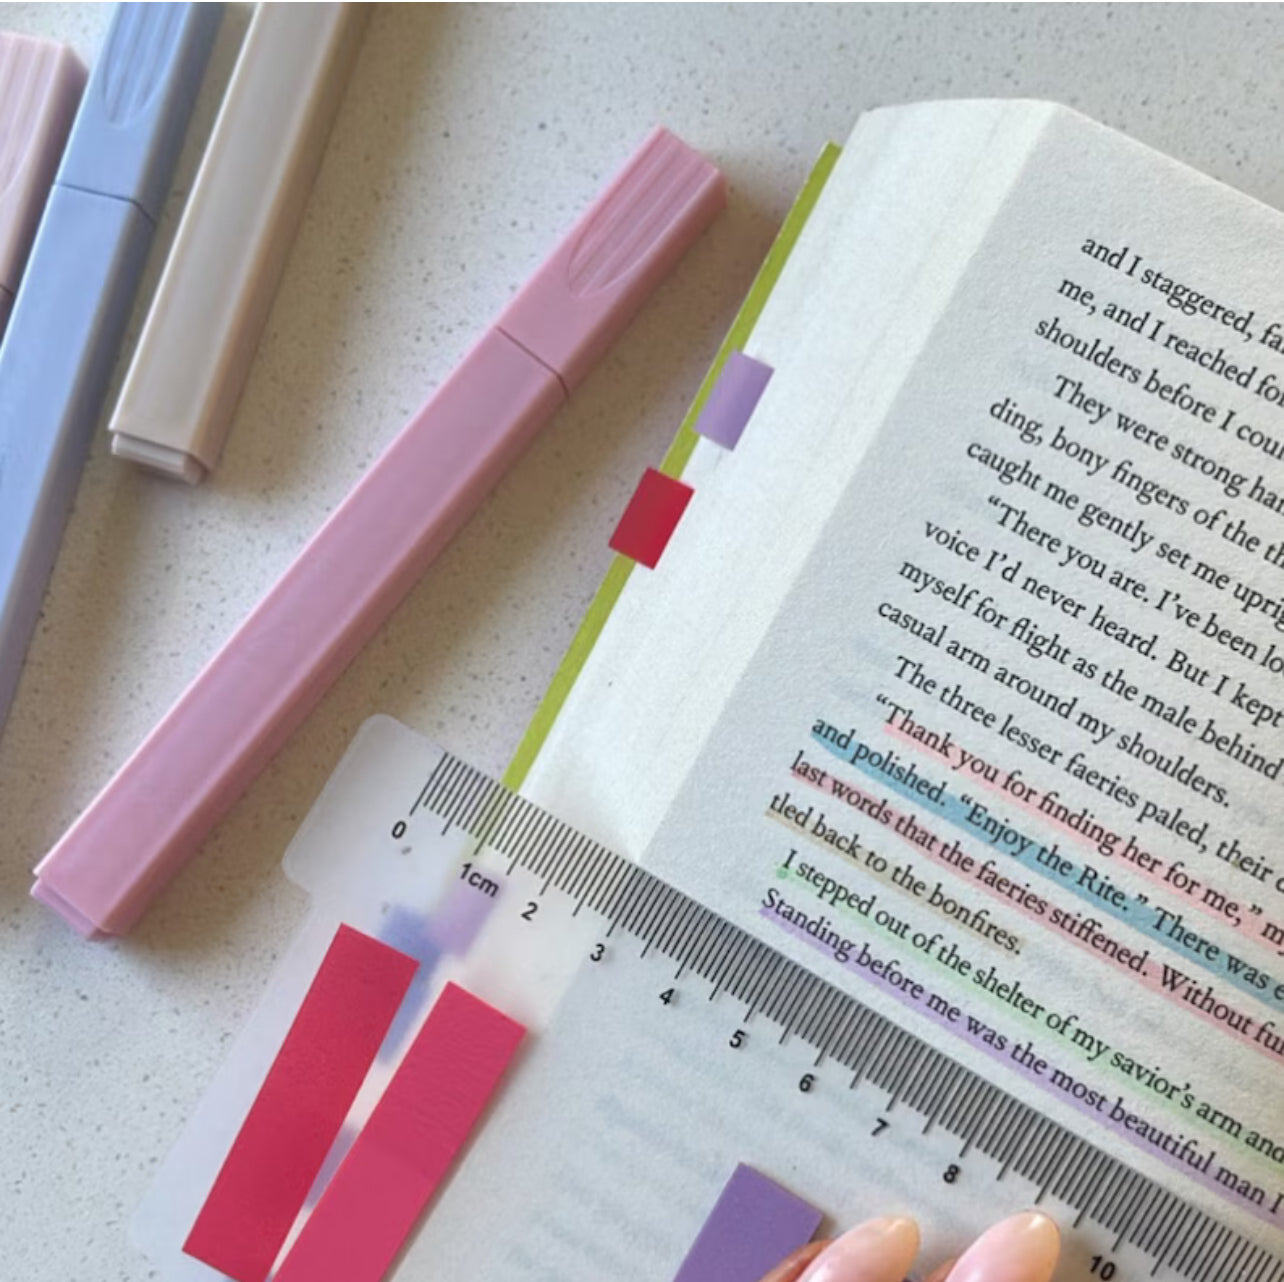 and I staggered, fa
me, and I reached for
shoulders before I cou
They were strong han
ding, bony fingers of the th
caught me gently set me uprig
“There you are. I’ve been lo
voice I’d never heard. But I kept
myself for flight as the male behind
casual arm around my shoulders.
The three lesser faeries paled, their
“Thank you for finding her for me,” m
and polished. “Enjoy the Rite.” There was e
last words that the faeries stiffened. Without fu
tled back to the bonfires.
I stepped out of the shelter of my savior’s arm and
Standing before me was the most beautiful man I
0 1cm 2 3 4 5 6 7 8 10